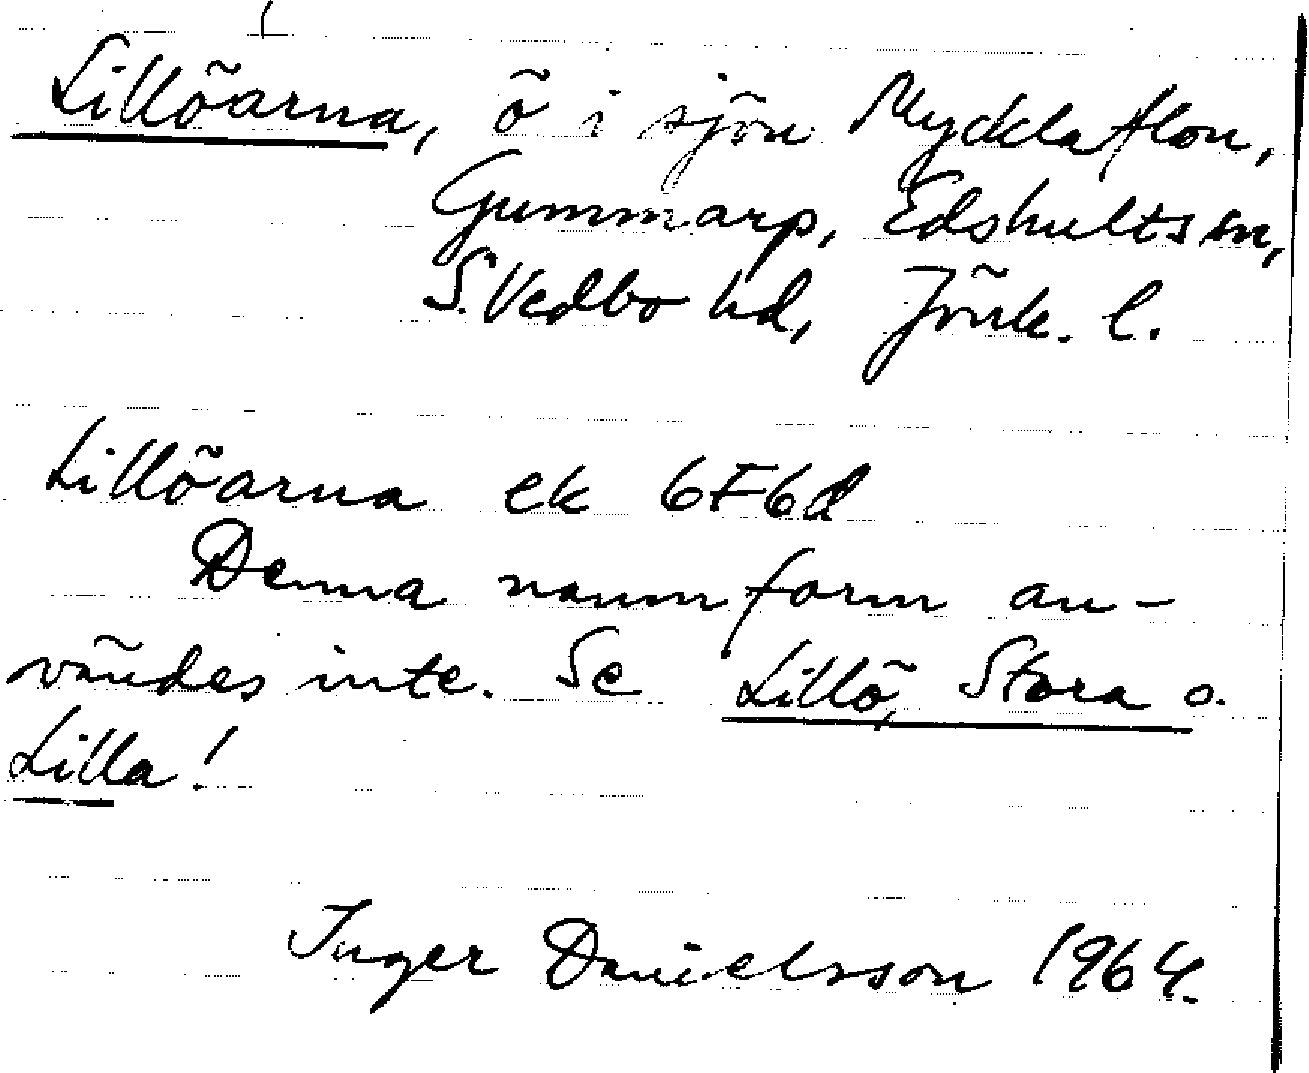 Lillöarna, ö i sjön Mycklaflon,
Gummarp, Edshults sn,
S. Vedbo hd, Jönk. l.
Lillöarna ek 6F6d
Denna namnform an-
vändes inte. Se Lillö, Stora o.
Lilla!
Inger Danielsson 1964.